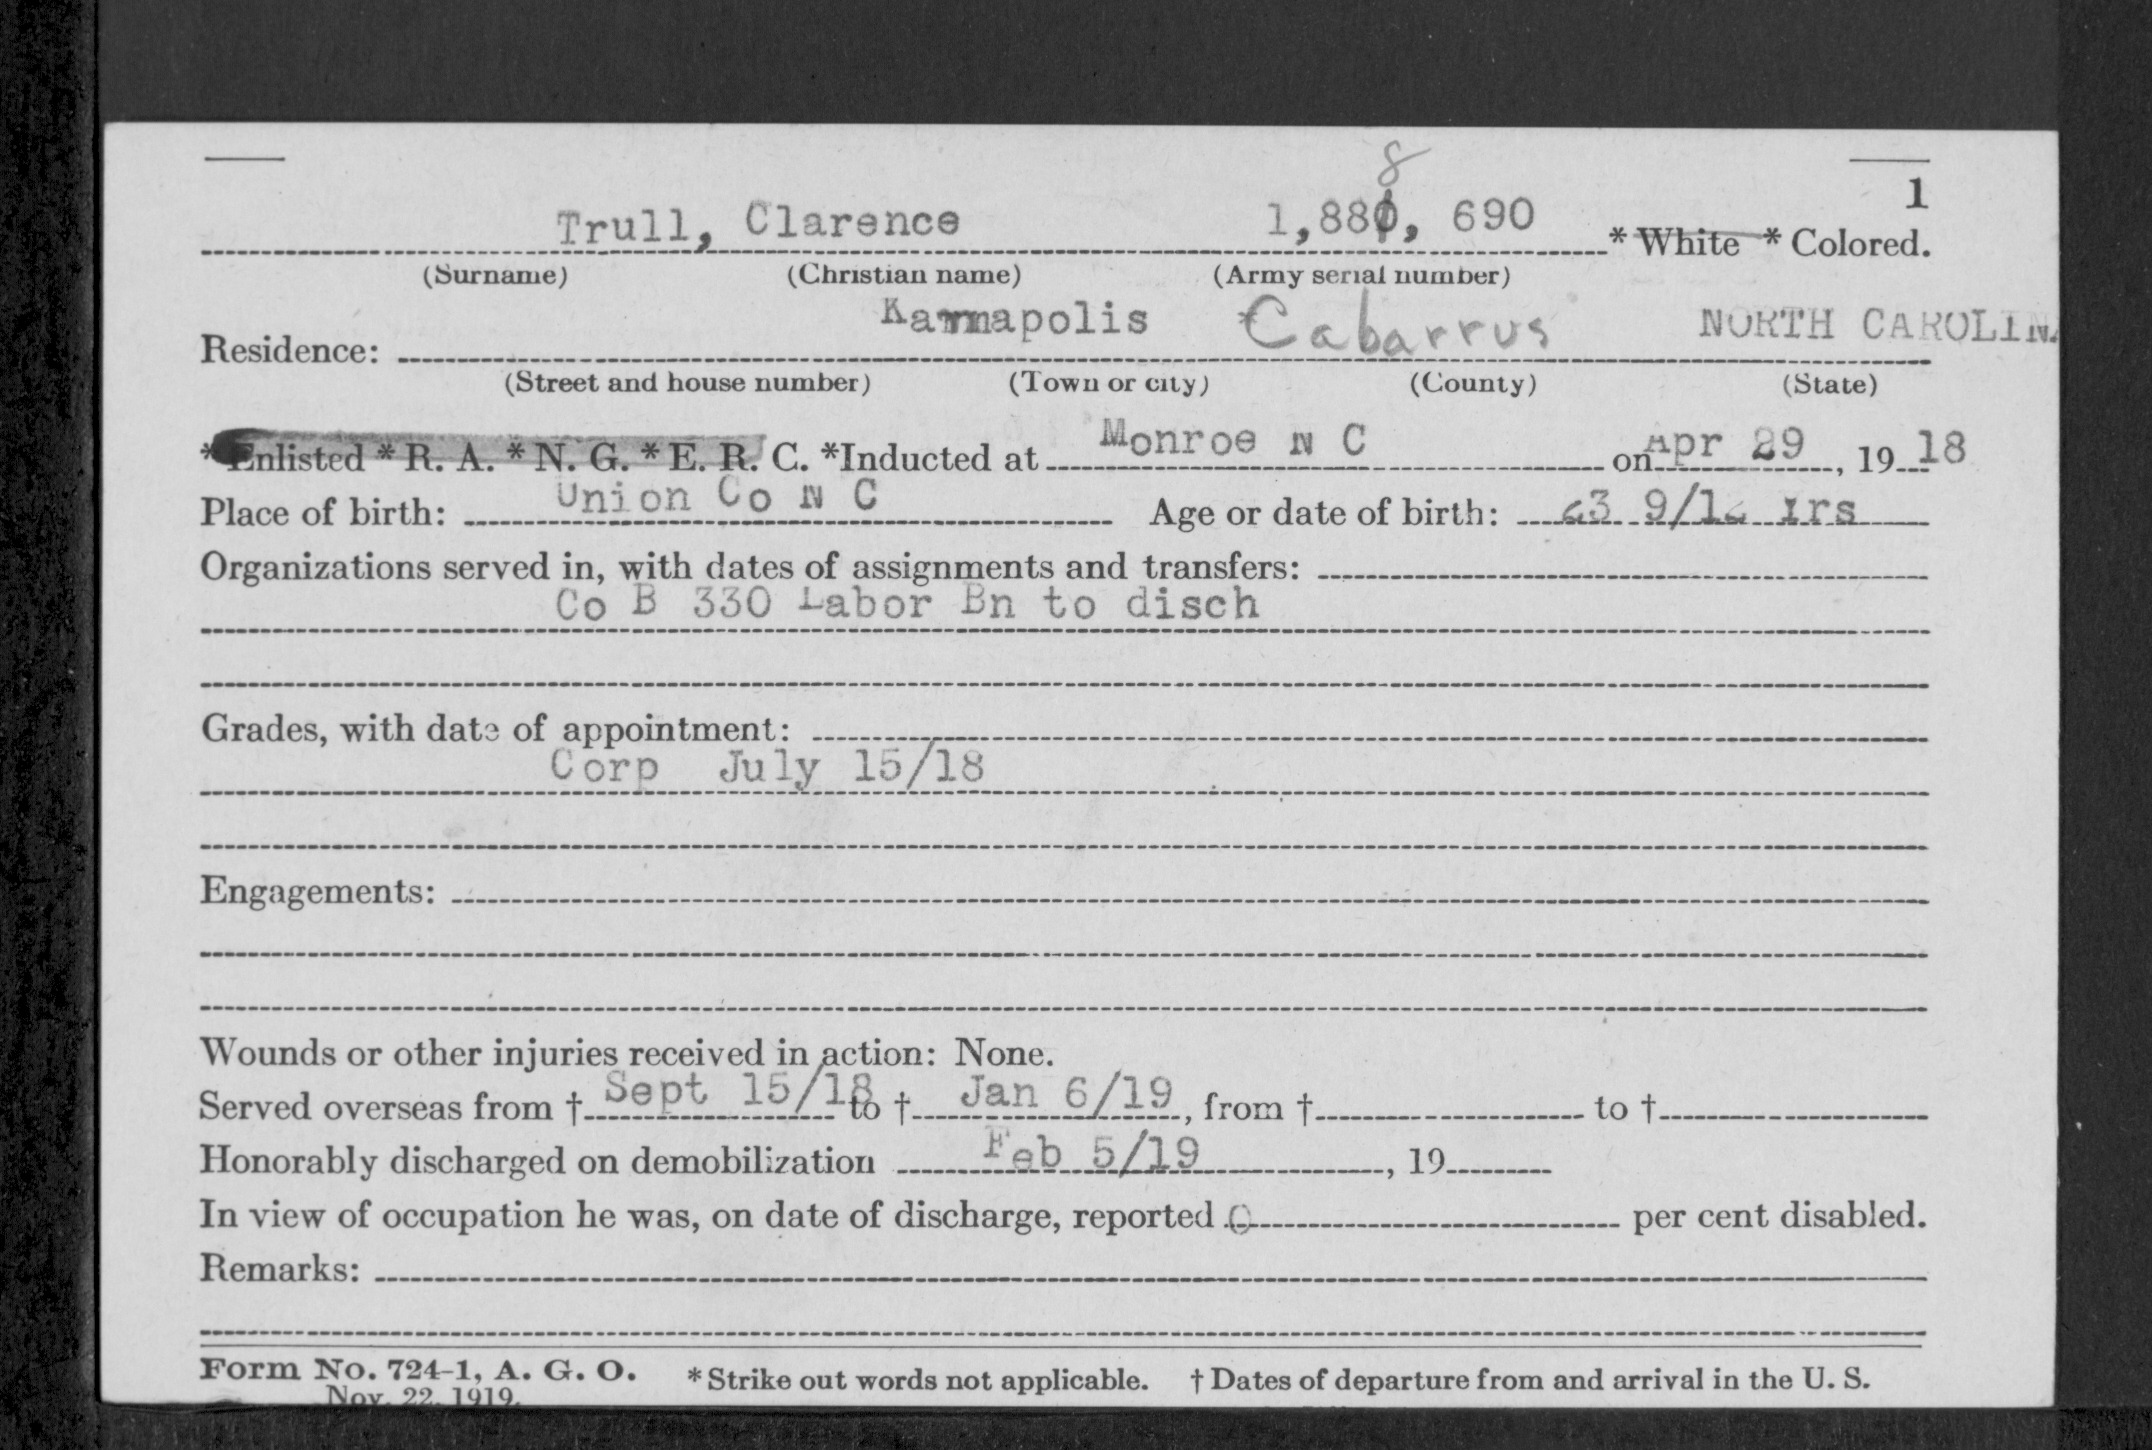 8
1
Trull, Clarence 1,880, 690 * White * Colored.
(Surname) (Christian name) (Army serial number)
Kannapolis * Cabarrus NORTH CAROLINA
Residence:
(Street and house number) (Town or city) (County) (State)
* Enlisted * R. A. * N. G. * E. R. C. *Inducted at Monroe N C on Apr 29, 19 18
Place of birth: Union Co N C Age or date of birth: 23 9/12 Yrs
Organizations served in, with dates of assignments and transfers:
Co B 330 Labor Bn to disch
Grades, with date of appointment:
Corp July 15/18
Engagements:
Wounds or other injuries received in action: None.
Served overseas from † Sept 15/18 to † Jan 6/19, from † to †
Honorably discharged on demobilization Feb 5/19, 19
In view of occupation he was, on date of discharge, reported 0 per cent disabled.
Remarks:
Form No. 724-1, A. G. O. * Strike out words not applicable. † Dates of departure from and arrival in the U. S.
Nov. 22, 1919.